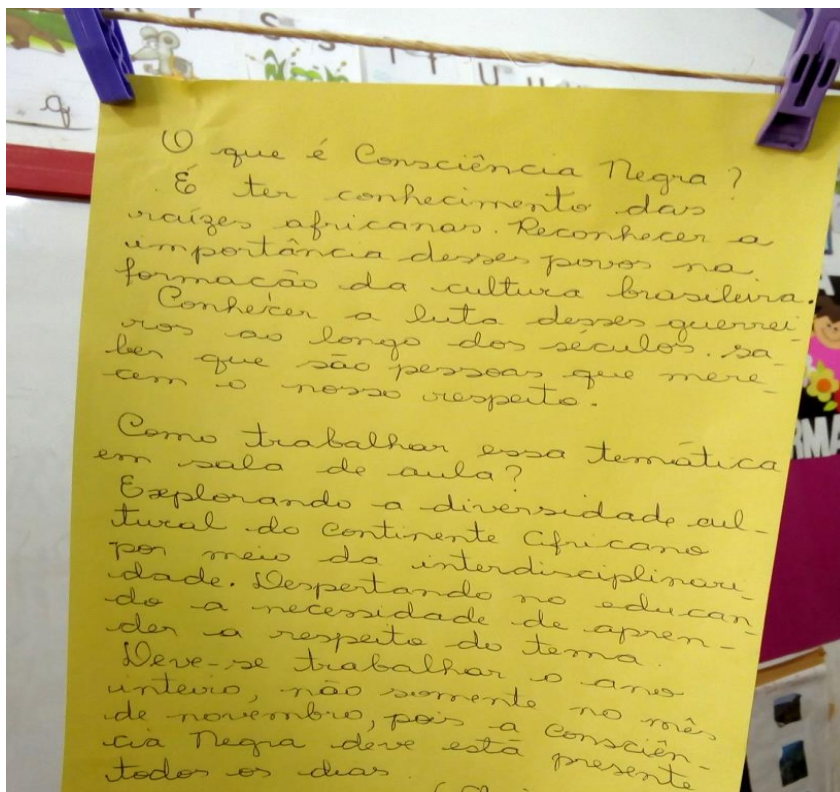 O que é Consciência Negra?
É ter conhecimento das
raízes africanas. Reconhecer a
importância desses povos na
formação da cultura brasileira.
Conhecer a luta desses guerrei-
ros ao longo dos séculos. Sa-
ber que são pessoas que mere-
cem o nosso respeito.
Como trabalhar essa temática
em sala de aula?
Explorando a diversidade cul-
tural do continente Africano
por meio da interdisciplinari-
dade. Despertando no educan-
do a necessidade de apren-
der a respeito do tema.
Deve-se trabalhar o ano
inteiro, não somente no mês
de novembro, pois a consciên-
cia Negra deve está presente
todos os dias.